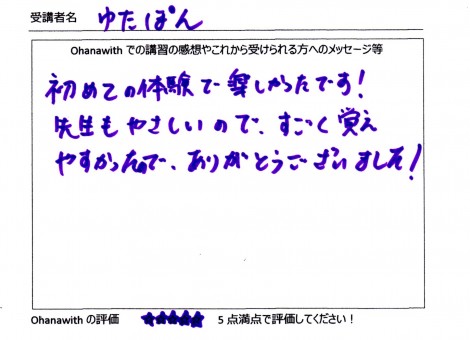 受講者名 ゆたぽん
Ohanawith での講習の感想やこれから受けられる方へのメッセージ等
初めての体験で楽しかったです！
先生もやさしいので、すごく覚え
やすかったので、ありがとうございました！
Ohanawith の評価 ★★★★★ 5 点満点で評価してください！